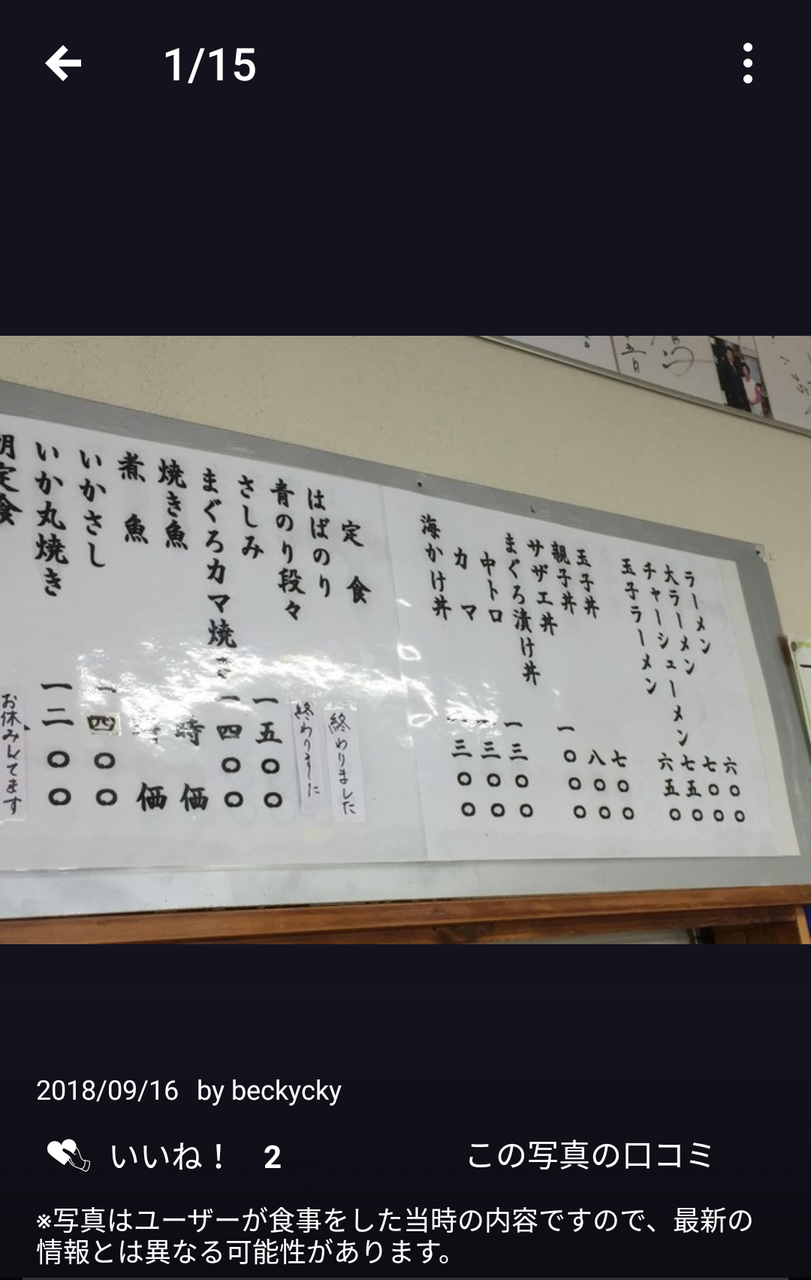 1/15
ラーメン 六〇〇
大ラーメン 七〇〇
チャーシューメン 七五〇
玉子ラーメン 六五〇
玉子丼 七〇〇
親子丼 八〇〇
サザエ丼 一〇〇〇
まぐろ漬け丼
中トロ 一三〇〇
カマ 一三〇〇
海かけ丼 一三〇〇
定食
はばのり 終わりました
青のり段々 終わりました
さしみ 一五〇〇
まぐろカマ焼き 一四〇〇
焼き魚 時価
煮魚 時価
いかさし 一四〇〇
いか丸焼き 一二〇〇
定食 お休みしてます
2018/09/16 by beckycky
いいね！ 2
この写真の口コミ
※写真はユーザーが食事をした当時の内容ですので、最新の
情報とは異なる可能性があります。